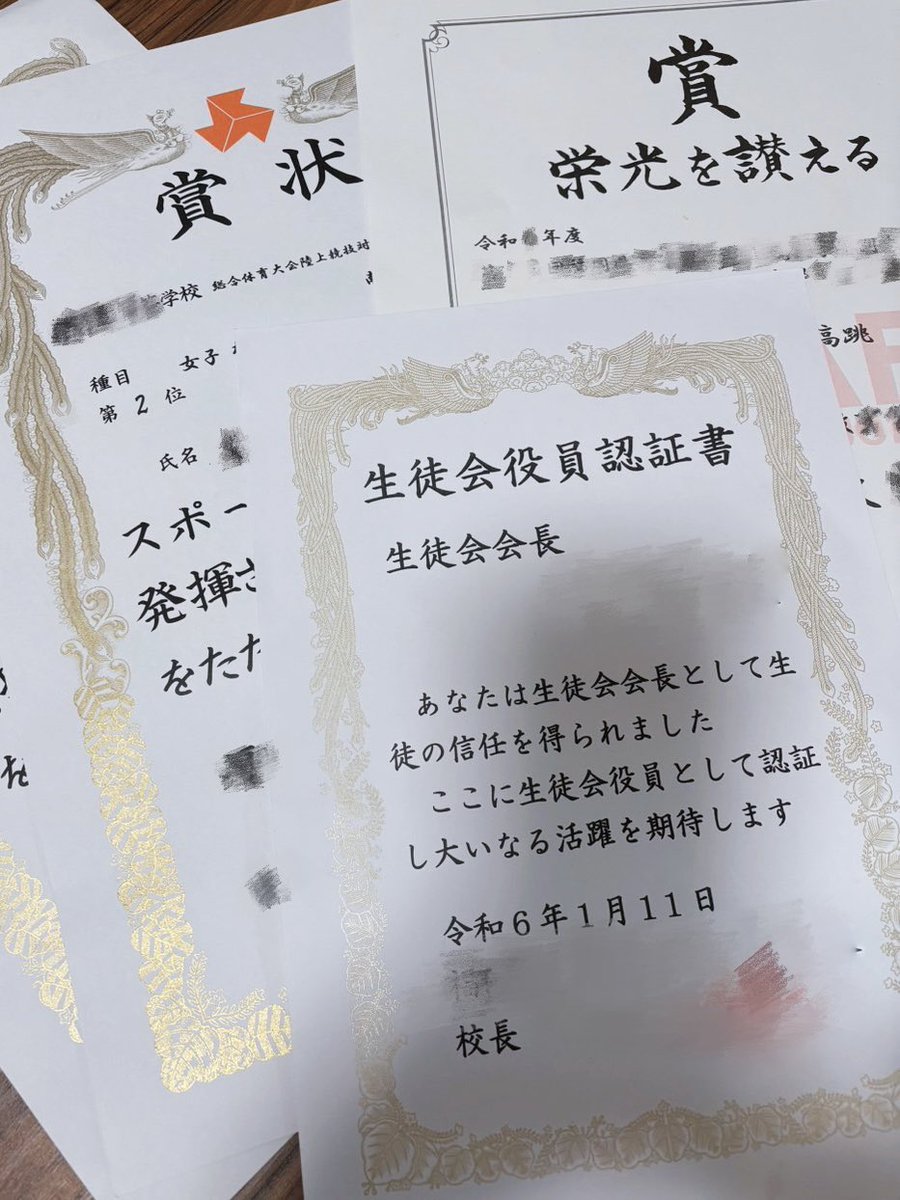 賞状
学校 総合体育大会陸上競技対
種目 女子
第2位
氏名
スポー
発揮さ
をたた
賞
栄光を讃える
令和 年度
高跳
生徒会役員認証書
生徒会会長
あなたは生徒会会長として生
徒の信任を得られました
ここに生徒会役員として認証
し大いなる活躍を期待します
令和6年1月11日
校長
を